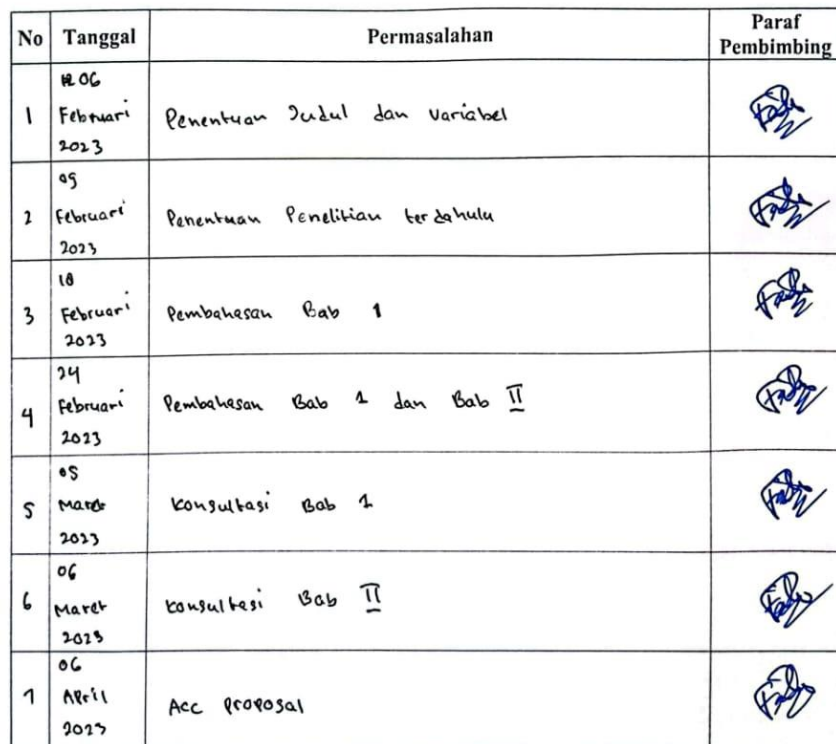 No Tanggal Permasalahan Paraf Pembimbing
1 06 Februari 2023 Penentuan Judul dan variabel
2 09 Februari 2023 Penentuan Penelitian terdahulu
3 18 Februari 2023 Pembahasan Bab 1
4 24 Februari 2023 Pembahasan Bab 1 dan Bab II
5 05 Maret 2023 Konsultasi Bab 1
6 06 Maret 2023 Konsultasi Bab II
7 06 April 2023 Acc Proposal